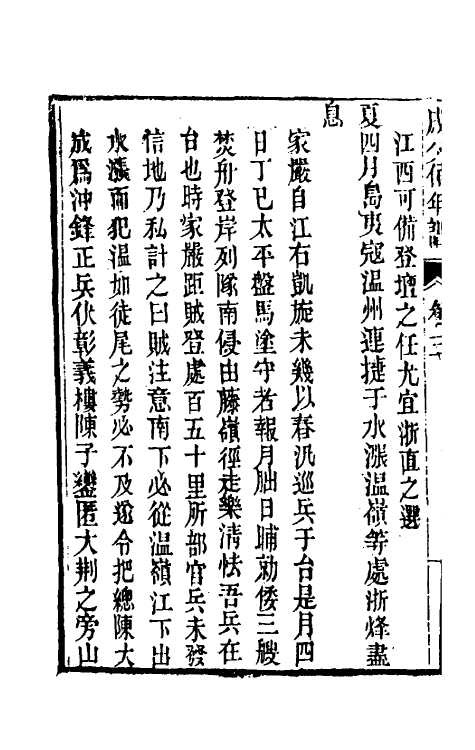 江西可備登壇之任尤宜浙直之選
夏四月島夷寇温州連捷于水漲温嶺等處浙烽盡
息
家嚴自江右凱旋未幾以春汛廵兵于台是月四
日丁巳太平盤馬塗守者報月朏日晡勍倭三艘
焚舟登岸列隊南侵由藤嶺徑走樂清怯吾兵在
台也時家嚴距賊登處百五十里所部官兵未發
信地乃私計之曰賊注意南下必從温嶺江下出
水漲而犯温如徒尾之勢必不及遂令把總陳大
成爲沖鋒正兵伏彰義樓陳子鑾匿大荆之旁山